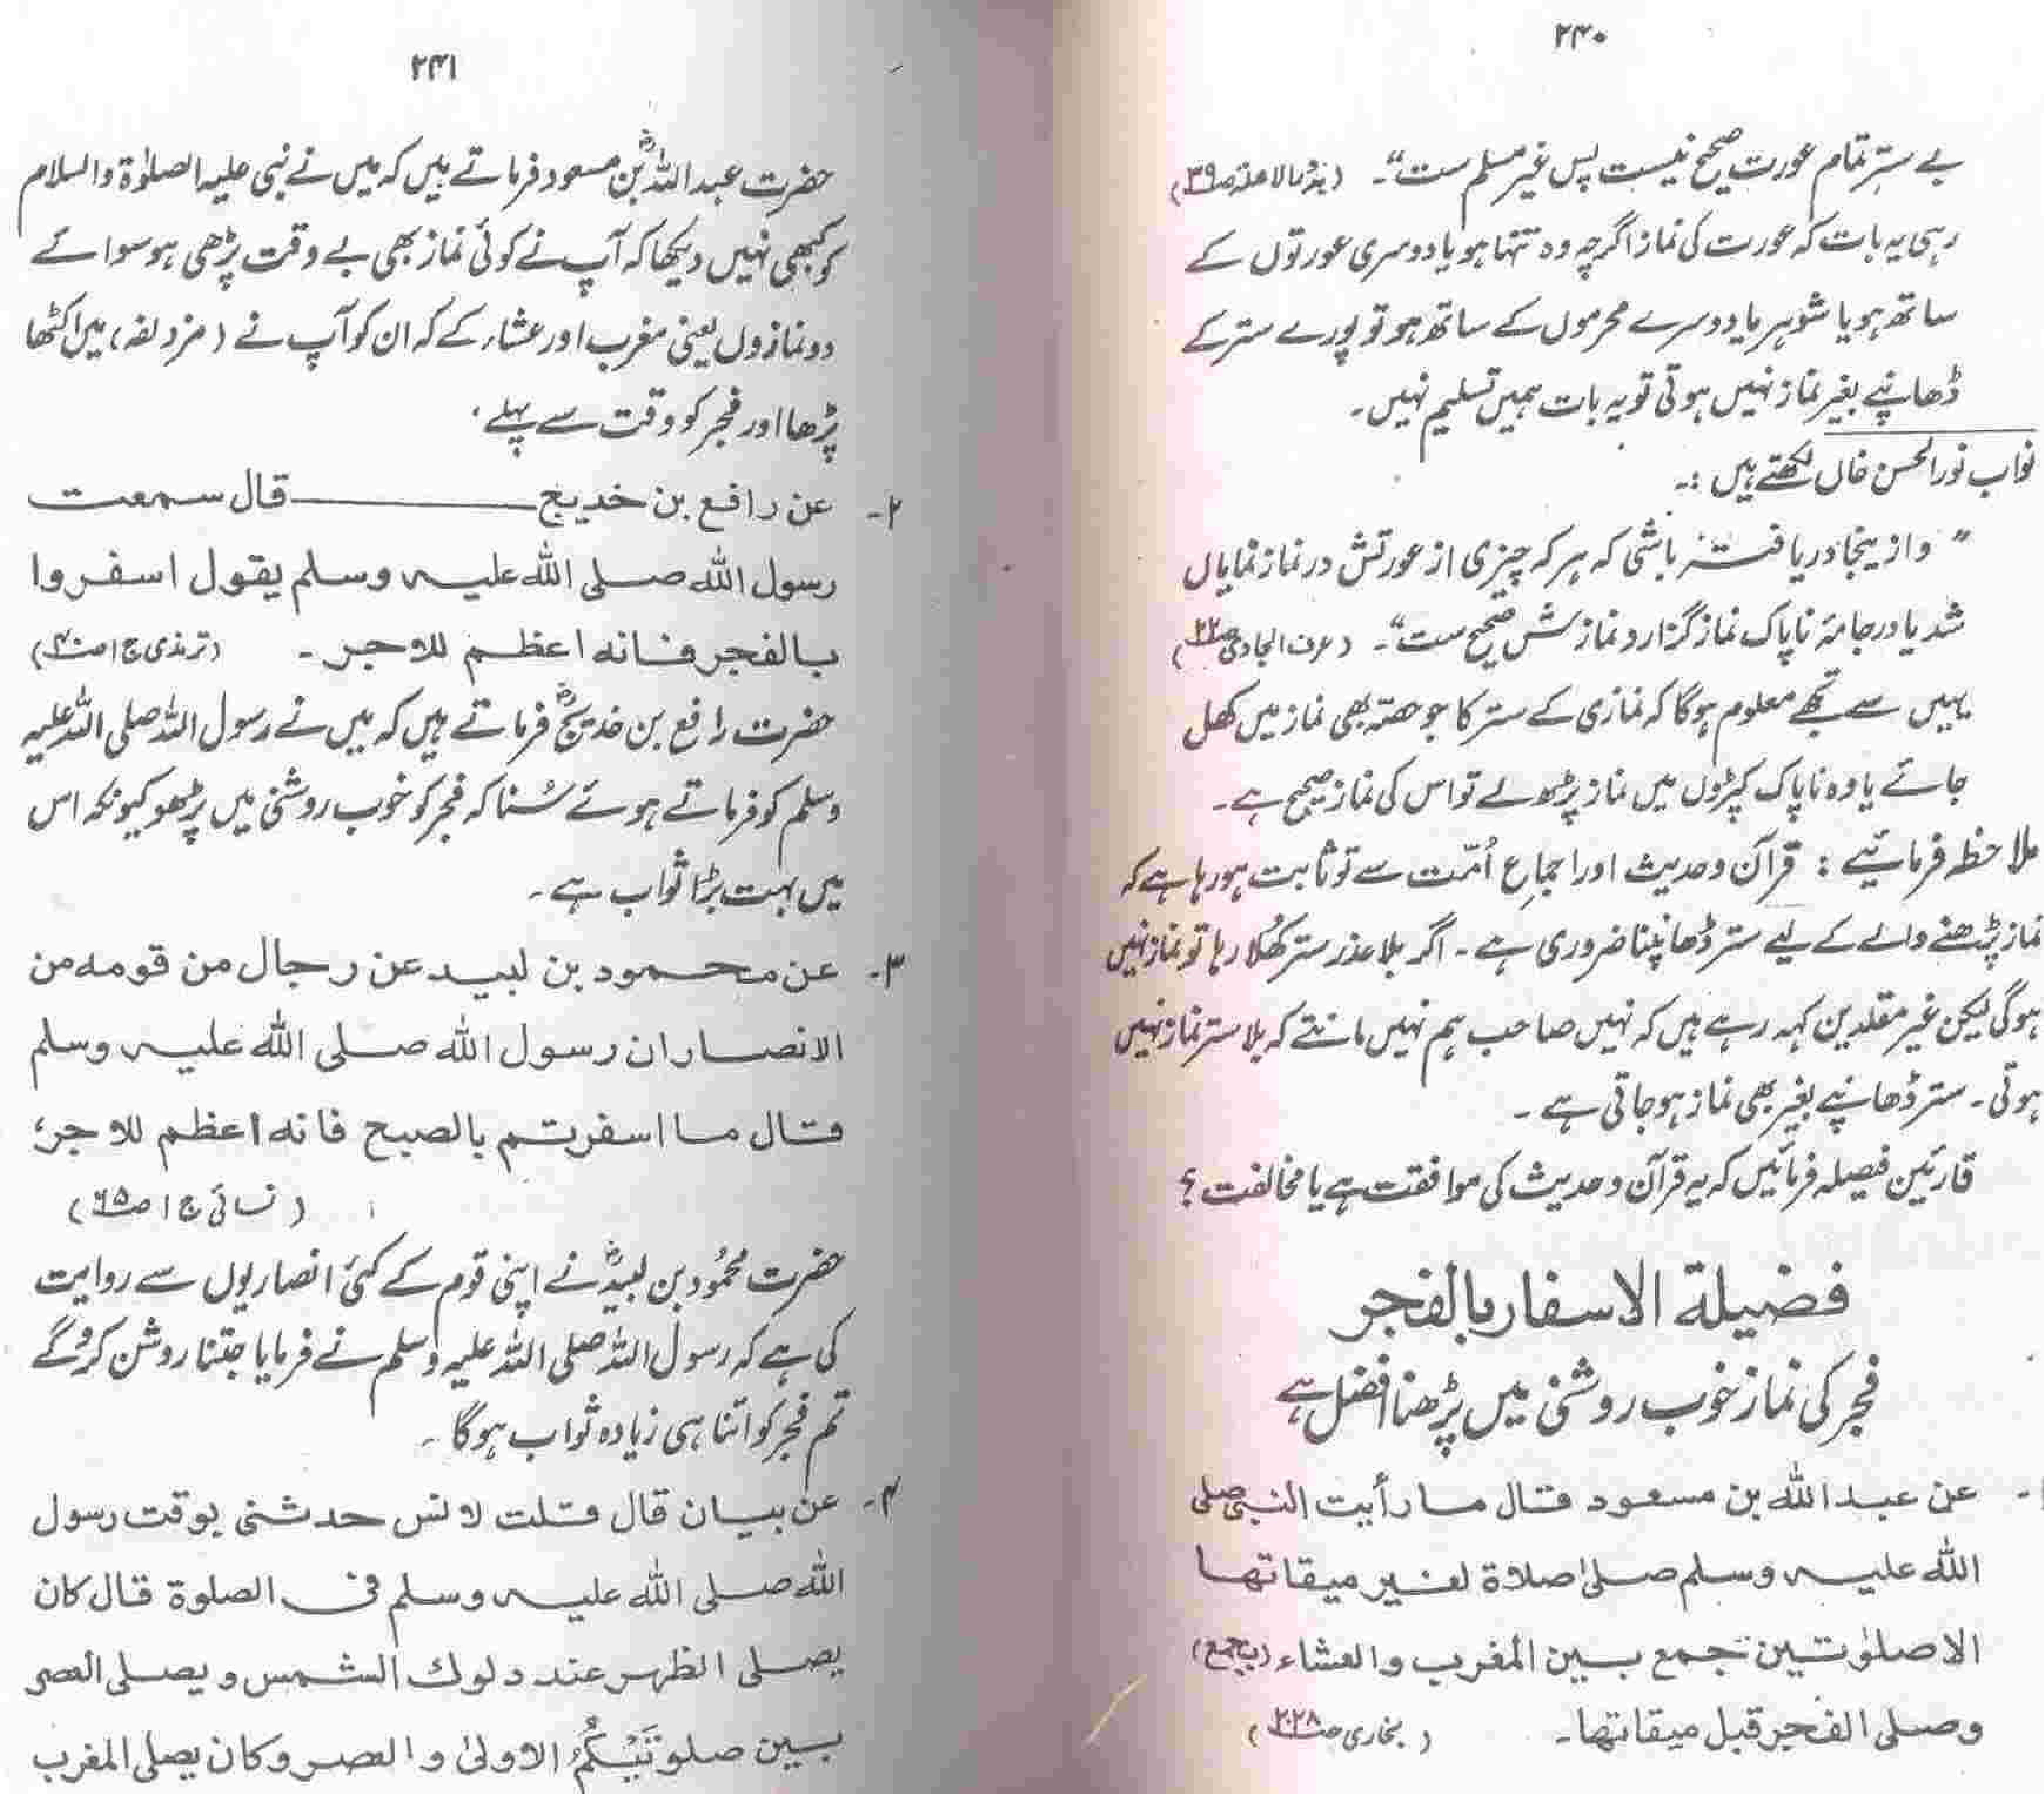 ۲۴۰
بے ستر تمام عورت صحیح نیست پس غیر مسلم ست"۔ (بدور الاہلہ ص۳۹)
رہی یہ بات کہ عورت کی نماز اگرچہ وہ تنہا ہو یا دوسری عورتوں کے
ساتھ ہو یا شوہر یا دوسرے محرموں کے ساتھ ہو تو پورے ستر کے
ڈھانپے بغیر نماز نہیں ہوتی تو یہ بات ہمیں تسلیم نہیں۔
نواب نور الحسن خاں لکھتے ہیں :۔
" و ازینجا دریافتہ باشی کہ ہر کہ چیزی از عورتش در نماز نمایاں
شد یا در جامۂ ناپاک نماز گزارد نمازش صحیح ست"۔ (عرف الجادی ص۲۲)
یہیں سے تجھے معلوم ہوگا کہ نمازی کے ستر کا جو حصہ بھی نماز میں کھل
جائے یا وہ ناپاک کپڑوں میں نماز پڑھ لے تو اس کی نماز صحیح ہے۔
ملاحظہ فرمائیے : قرآن و حدیث اور اجماعِ اُمّت سے تو ثابت ہو رہا ہے کہ
نماز پڑھنے والے کے لیے ستر ڈھانپنا ضروری ہے۔ اگر بلا عذر ستر کھُلا رہا تو نماز نہیں
ہوگی لیکن غیر مقلدین کہہ رہے ہیں کہ نہیں صاحب ہم نہیں مانتے کہ بلا ستر نماز نہیں
ہوتی۔ ستر ڈھانپے بغیر بھی نماز ہو جاتی ہے۔
قارئین فیصلہ فرمائیں کہ یہ قرآن و حدیث کی موافقت ہے یا مخالفت ؟
فضیلة الاسفار بالفجر
فجر کی نماز خوب روشنی میں پڑھنا افضل ہے
۱۔ عن عبد اللہ بن مسعود قال ما رأیت النبی صلی
اللہ علیہ وسلم صلی صلاة لغیر میقاتها
الا صلوٰتین جمع بین المغرب والعشاء (بجمع)
وصلی الفجر قبل میقاتها۔ (بخاری ص۲۲۸)
۲۴۱
حضرت عبد اللہؓ بن مسعود فرماتے ہیں کہ میں نے نبی علیہ الصلوٰۃ والسلام
کو کبھی نہیں دیکھا کہ آپ نے کوئی نماز بھی بے وقت پڑھی ہو سوائے
دو نمازوں یعنی مغرب اور عشاء کے کہ ان کو آپ نے (مزدلفہ) میں اکٹھا
پڑھا اور فجر کو وقت سے پہلے۔
۲۔ عن رافع بن خدیج ــــــــ قال سمعت
رسول اللہ صلی اللہ علیہ وسلم یقول اسفروا
بالفجر فانه اعظم للاجر۔ (ترمذی ج۱ ص۴۰)
حضرت رافع بن خدیجؓ فرماتے ہیں کہ میں نے رسول اللہ صلی اللہ علیہ
وسلم کو فرماتے ہوئے سُنا کہ فجر کو خوب روشنی میں پڑھو کیونکہ اس
میں بہت بڑا ثواب ہے۔
۳۔ عن محمود بن لبید عن رجال من قومه من
الانصار ان رسول اللہ صلی اللہ علیہ وسلم
قال ما اسفرتم بالصبح فانه اعظم للاجر؛
(نسائی ج۱ ص۶۵)
حضرت محمُود بن لبیدؓ نے اپنی قوم کے کئی انصاریوں سے روایت
کی ہے کہ رسول اللہ صلی اللہ علیہ وسلم نے فرمایا جتنا روشن کرو گے
تم فجر کو اتنا ہی زیادہ ثواب ہوگا۔
۴۔ عن بیان قال قلت لانس حدثنی بوقت رسول
اللہ صلی اللہ علیہ وسلم فی الصلوة قال کان
یصلی الظهر عند دلوك الشمس ویصلی العصر
بین صلوتَیْکُمُ الاولیٰ والعصر وکان یصلی المغرب